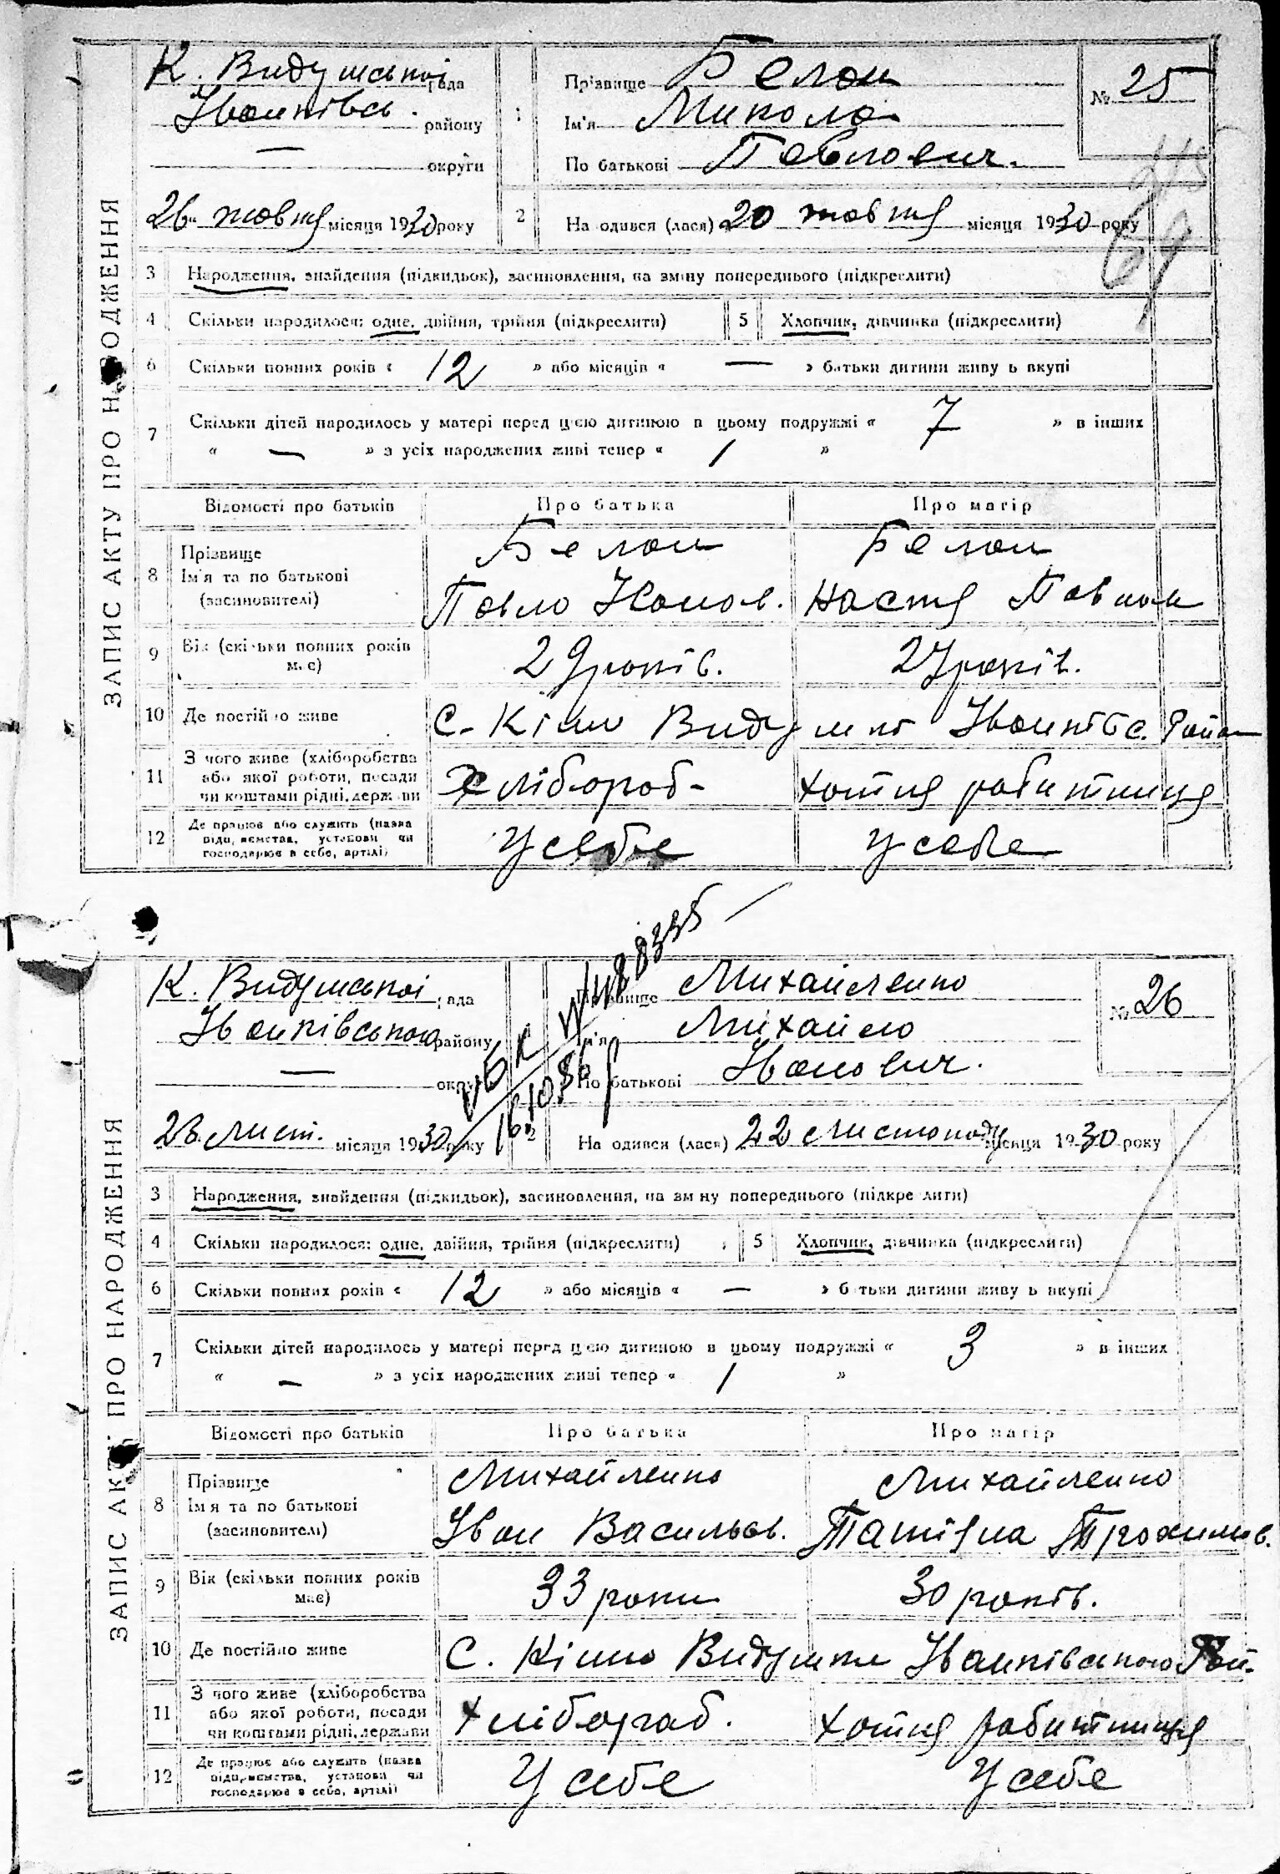 ЗАПИС АКТУ ПРО НАРОДЖЕННЯ
К. Видумської рада
Іванківсь. району
— округи
26 жовтня місяця 1930 року
1 Прізвище Белан
Ім'я Микола
По батькові Павлович.
№ 25
2 Народився (лася) 20 жовтня місяця 1930 року
3 Народження, знайдення (підкидьок), засиновлення, на зміну попереднього (підкреслити)
4 Скільки народилося: одне, двійня, трійня (підкреслити) 5 Хлопчик, дівчинка (підкреслити)
6 Скільки повних років « 12 » або місяців « — » батьки дитини живуть вкупі
7 Скільки дітей народилось у матері перед цією дитиною в цьому подружжі « 7 » в інших
« — » з усіх народжених живі тепер « 1 »
Відомості про батьків Про батька Про матір
8 Прізвище Белан Белан
Ім'я та по батькові Павло Іванов. Настя Павлов
(засиновителі)
9 Вік (скільки повних років має) 29 років. 27 років.
10 Де постійно живе С. Кішо Видумка Іванківс. Район
11 З чого живе (хліборобства
або якої роботи, посади Хлібороб- хатня работниця
чи коштами рідні, держави
12 Де працює або служить (назва
підприємства, установи чи У себе У себе
господарює в себе, артілі)
ЗАПИС АКТУ ПРО НАРОДЖЕННЯ
К. Видумської рада
Іванківського району
— округи
26 лист. місяця 1930 року
Прізвище Михайленко
Ім'я Михайло
По батькові Іванович.
№ 26
2 Народився (лася) 22 листопаду місяця 1930 року
3 Народження, знайдення (підкидьок), засиновлення, на зміну попереднього (підкреслити)
4 Скільки народилося: одне, двійня, трійня (підкреслити) 5 Хлопчик, дівчинка (підкреслити)
6 Скільки повних років « 12 » або місяців « — » батьки дитини живуть вкупі
7 Скільки дітей народилось у матері перед цією дитиною в цьому подружжі « 3 » в інших
« — » з усіх народжених живі тепер « 1 »
Відомості про батьків Про батька Про матір
8 Прізвище Михайленко Михайленко
Ім'я та по батькові Іван Васильов. Татіяна Трохимов.
(засиновителі)
9 Вік (скільки повних років має) 33 роки 30 років.
10 Де постійно живе С. Кішо Видумка Іванківського Рай.
11 З чого живе (хліборобства
або якої роботи, посади хлібороб. хатня работниця
чи коштами рідні, держави
12 Де працює або служить (назва
підприємства, установи чи У себе У себе
господарює в себе, артілі)